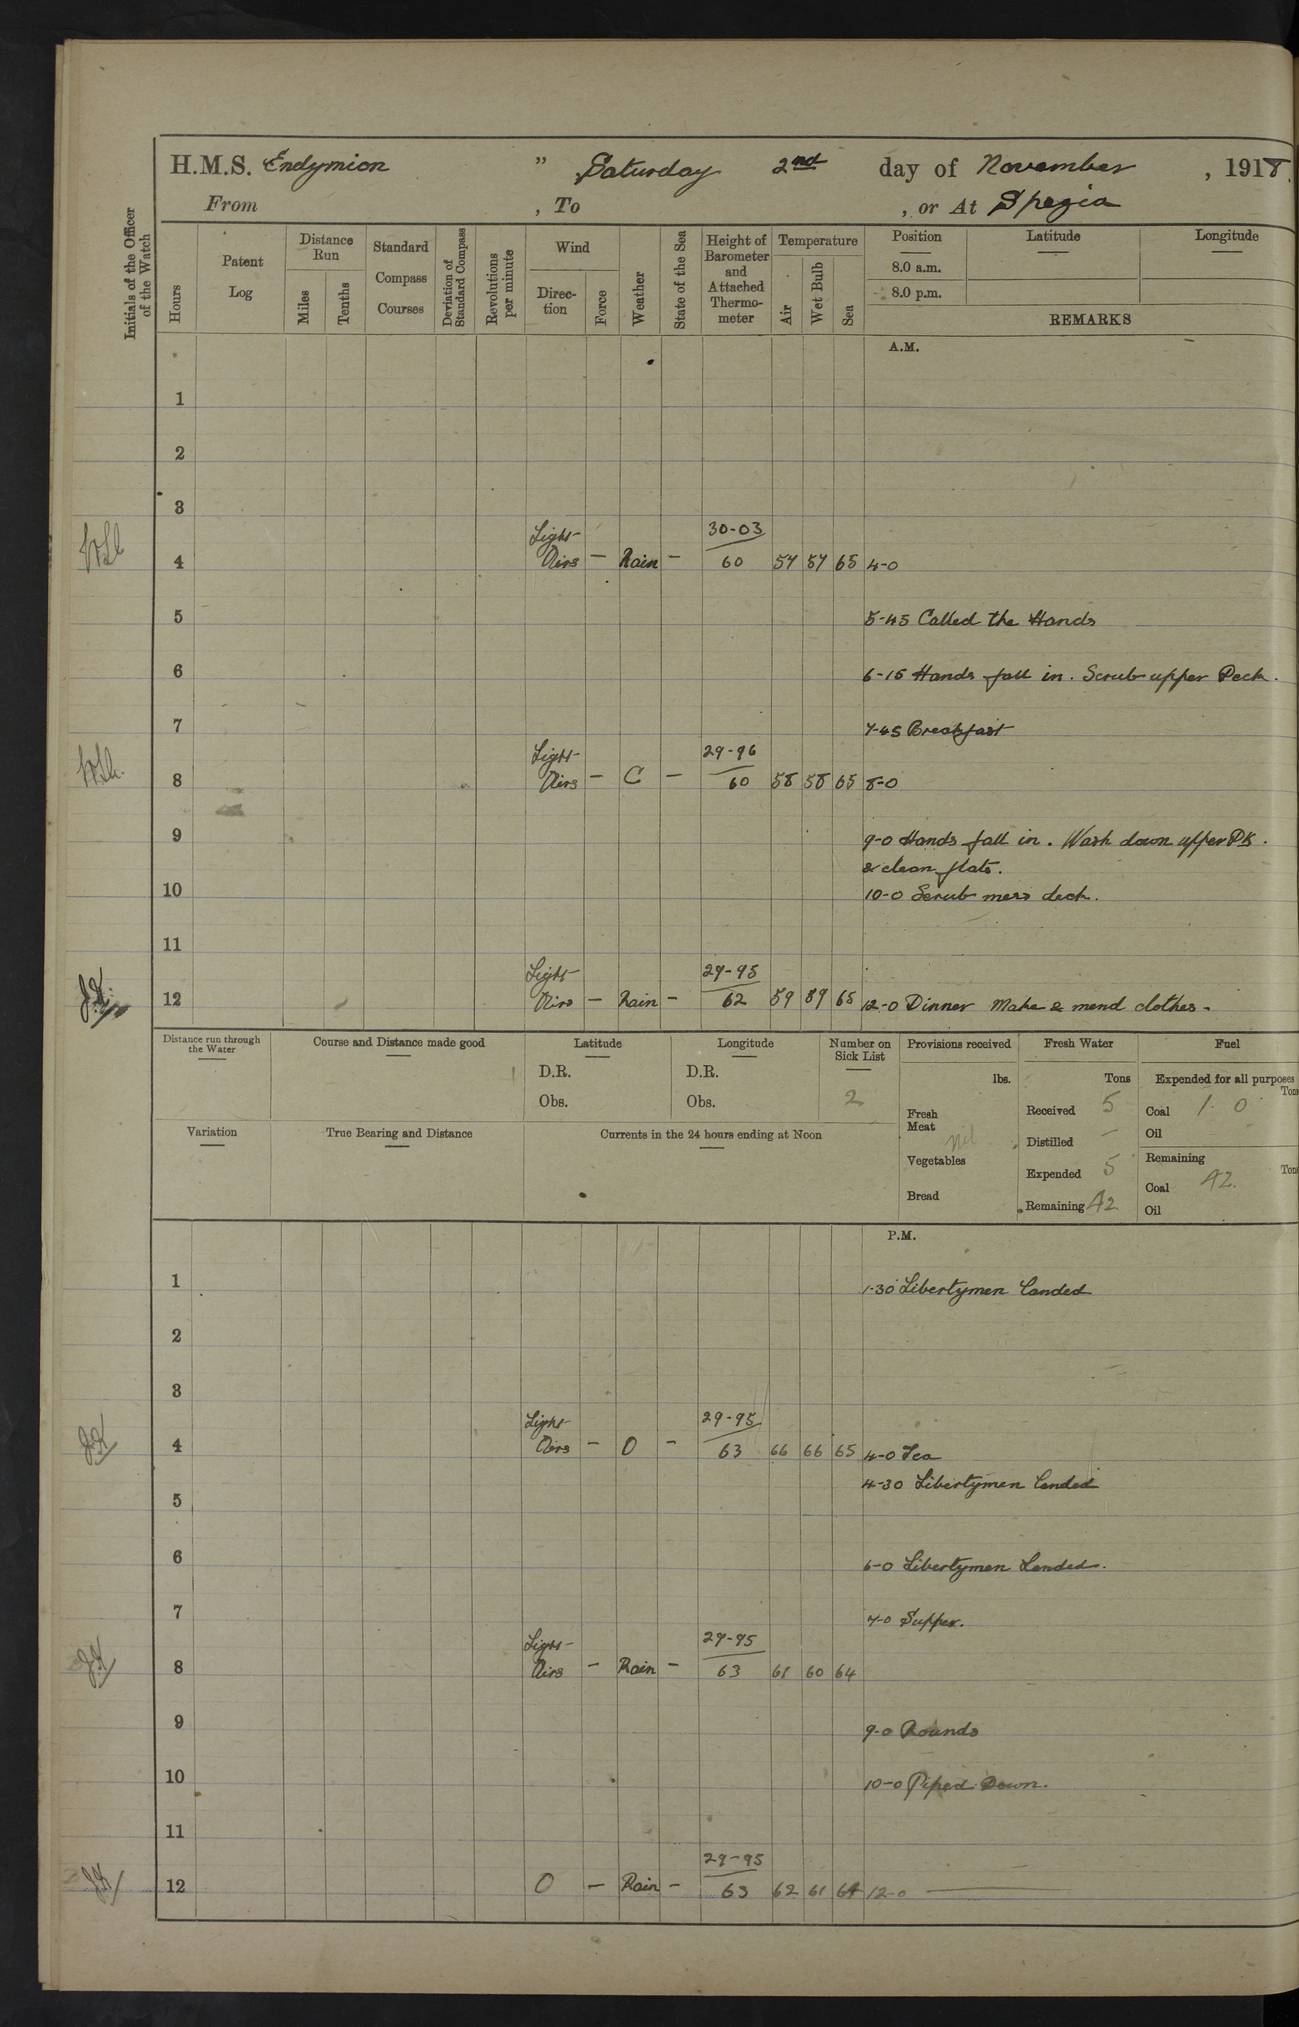 H.M.S. Endymion " Saturday 2nd day of November, 1918.
From , To , or At Spezia
Initials of the Officer of the Watch
Hours
Patent Log
Distance Run
Miles Tenths
Standard Compass Courses
Deviation of Standard Compass
Revolutions per minute
Wind
Direction Force
Weather
State of the Sea
Height of Barometer and Attached Thermometer
Temperature
Air Wet Bulb Sea
Position Latitude Longitude
8.0 a.m.
8.0 p.m.
REMARKS
A.M.
1
2
3
Light 30-03
4 Airs – Rain – 60 57 57 65 4-0
5 5-45 Called the Hands
6 6-15 Hands fall in. Scrub upper Deck.
7 7-45 Breakfast
Light 29-96
8 Airs – C – 60 58 58 65 8-0
9 9-0 Hands fall in. Wash down upper Dk.
& clean flats.
10 10-0 Scrub mess deck.
11
Light 29-95
J.K. 12 Airs – Rain – 62 59 59 65 12-0 Dinner Make & mend clothes-
Distance run through the Water
Course and Distance made good
Latitude
D.R.
Obs.
Longitude
D.R.
Obs.
Number on Sick List
2
Provisions received
lbs.
Fresh Meat
nil
Vegetables
Bread
Fresh Water
Tons
Received 5
Distilled –
Expended 5
Remaining 42
Fuel
Expended for all purposes
Tons
Coal 1 0
Oil
Remaining
Tons
Coal 42.
Oil
Variation
True Bearing and Distance
Currents in the 24 hours ending at Noon
P.M.
1 1-30 Libertymen Landed
2
3
Light 29-95
J.K 4 Airs – O – 63 66 66 65 4-0 Tea
4-30 Libertymen Landed
5
6 6-0 Libertymen Landed.
7 7-0 Supper.
Light 29-95
J.K 8 Airs – Rain – 63 61 60 64
9 9-0 Rounds
10 10-0 Piped Down.
11
29-95
J.K 12 O – Rain – 63 62 61 64 12-0